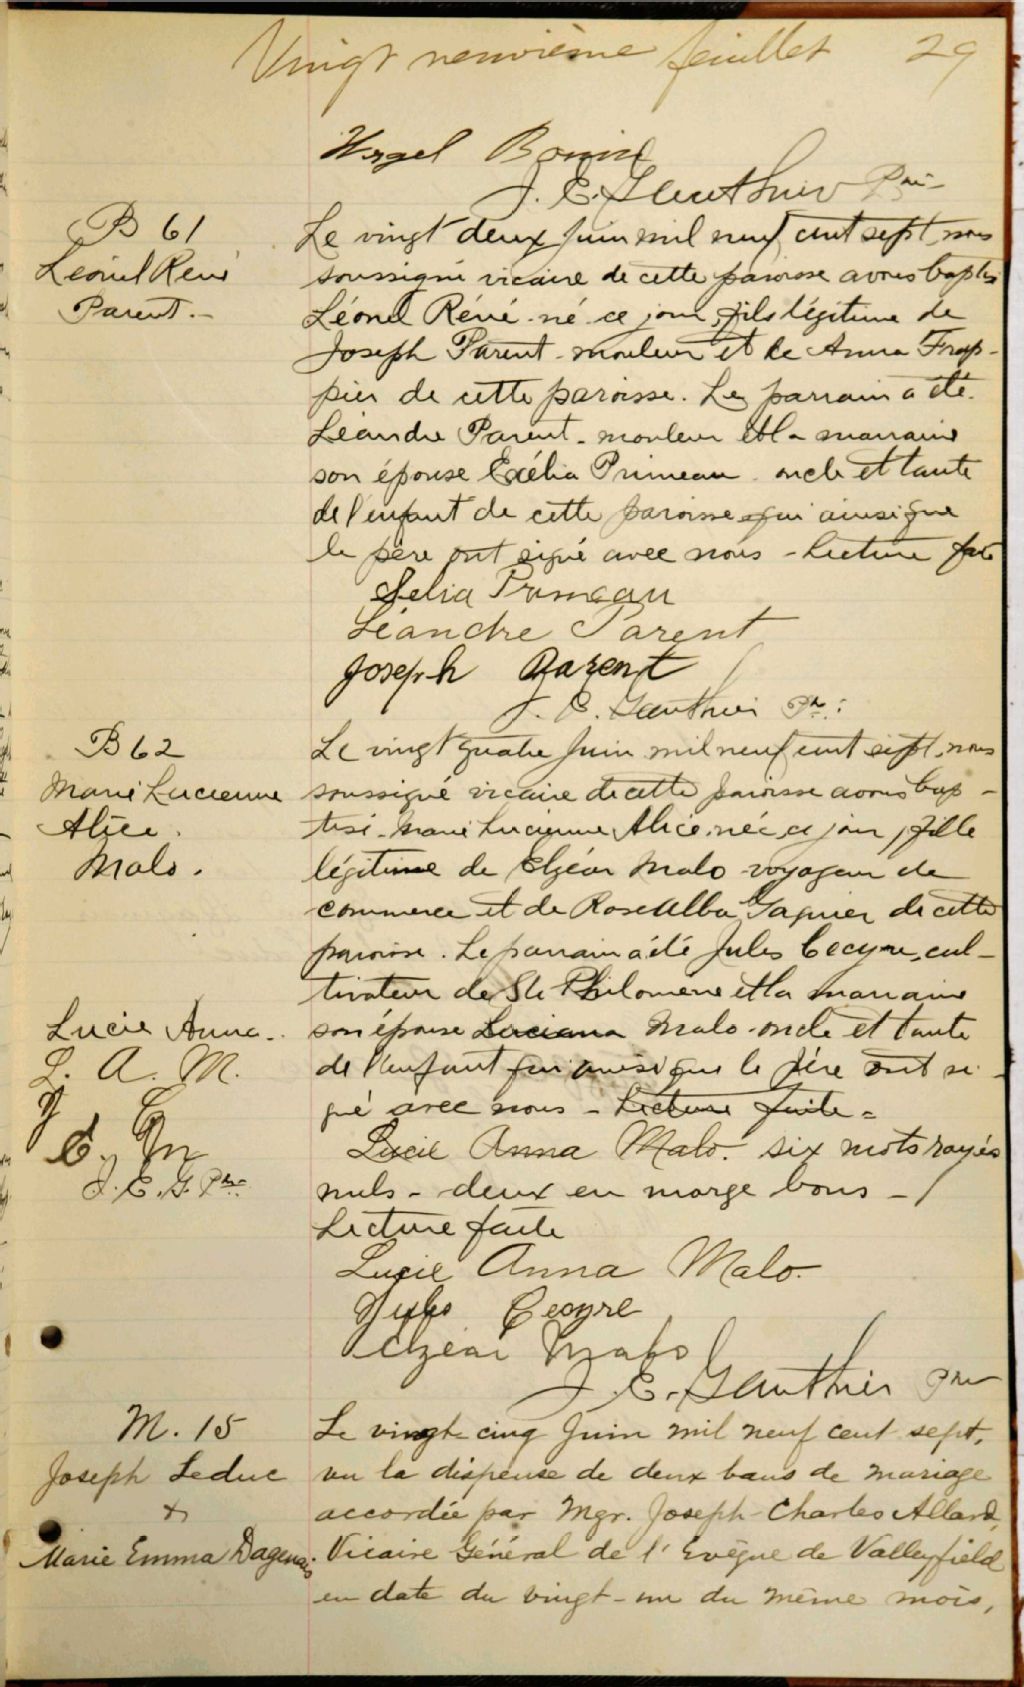 Vingt neuvième feuillet 29
Bonin
J. E. Gauthier Ptre
B 61
Léonel René
Parent.-
Le vingt deux Juin mil neuf cent sept, nous
soussigné vicaire de cette paroisse avons baptisé
Léonel Réné né ce jour, fils légitime de
Joseph Parent mouleur et de Anna Frap-
pier de cette paroisse. Le parrain a été
Léandre Parent mouleur et la marraine
son épouse Exélia Primeau oncle et tante
de l'enfant de cette paroisse qui ainsi que
le père ont signé avec nous - Lecture faite
Selia Primeau
Léandre Parent
Joseph Parent
J. E. Gauthier Ptre:
B 62
Marie Lucienne
Alice.
Malo.
Le vingt quatre Juin mil neuf cent sept, nous
soussigné vicaire de cette paroisse avons bap-
tisé Marie Lucienne Alice, née ce jour, fille
légitime de Elzéar Malo voyageur de
commerce et de Rose Alba Gagnier de cette
paroisse. Le parrain a été Jules Cecyre, cul-
tivateur de Ste Philomène et la marraine
son épouse Luciana Malo oncle et tante
de l'enfant qui ainsi que le père ont si-
gné avec nous - Lecture faite -
Lucie Anna..
L. A. M.
J C
E. M
J. E. G. Ptre
Lucie Anna Malo. six mots rayés
nuls - deux en marge bons -
Lecture faite
Lucie Anna Malo.
Jules Cecyre
Elzéar Malo
J. E. Gauthier Ptre
M. 15
Joseph Leduc
&
Marie Emma Dagenais
Le vingt cinq Juin mil neuf cent sept,
vu la dispense de deux bans de mariage
accordée par Mgr. Joseph-Charles Allard,
Vicaire Général de l'Evêque de Valleyfield
en date du vingt-un du même mois,